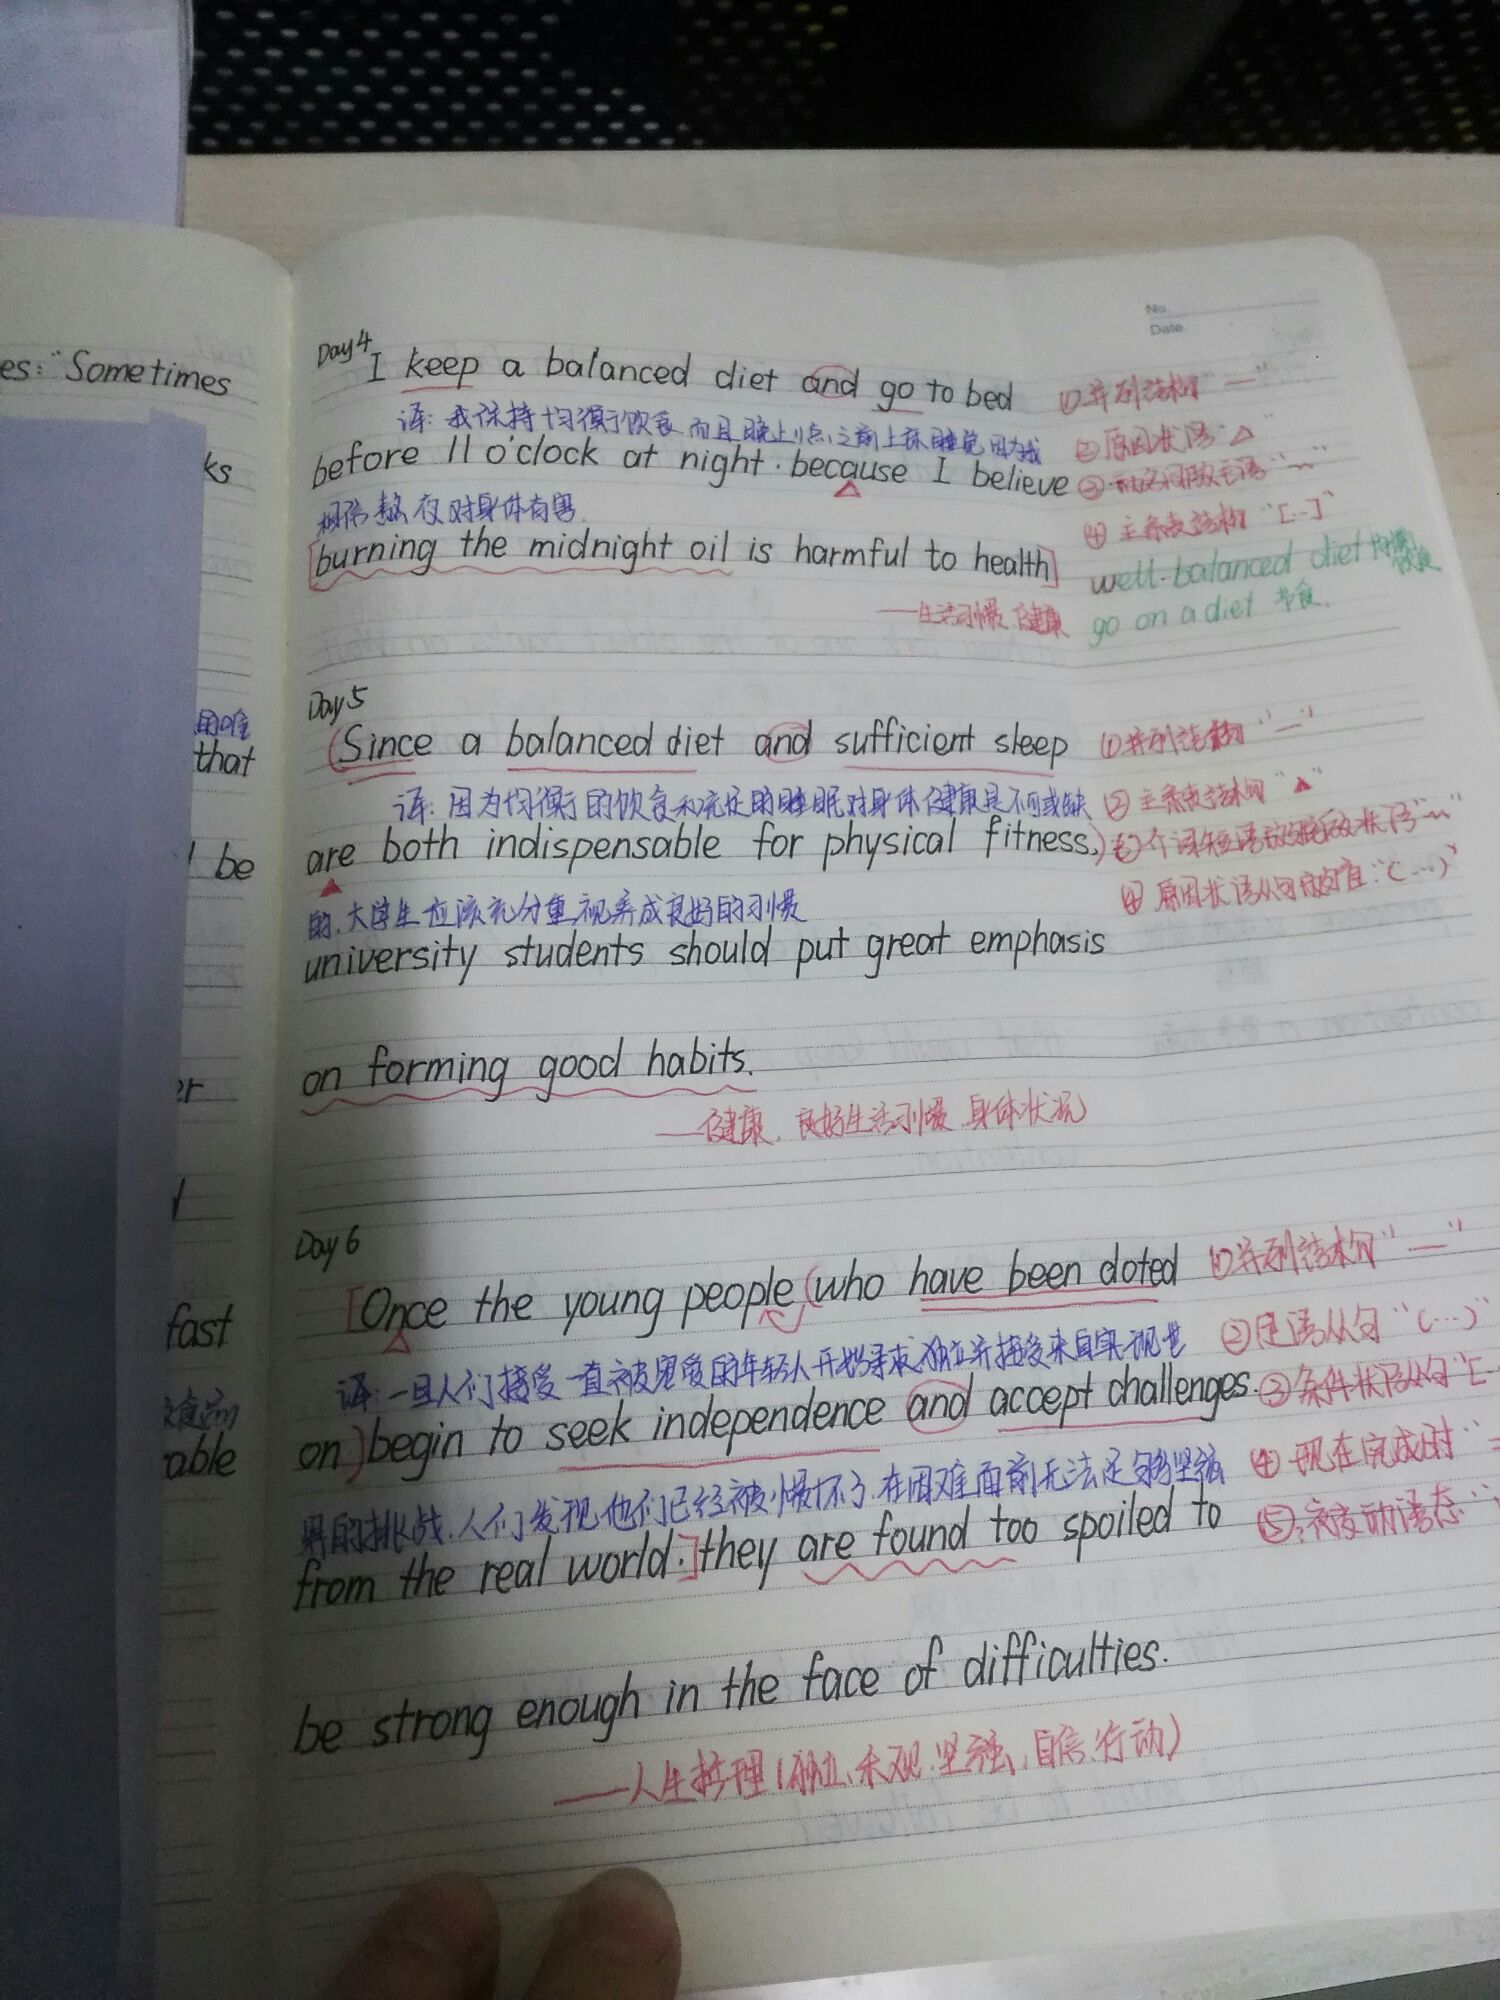 No.
Date.
es: "Sometimes
ks
困难
that
be
er
fast
able
Day4
I keep a balanced diet and go to bed
① 并列结构 "—"
译: 我保持均衡饮食 而且晚上11点之前上床睡觉 因为我
② 原因状语 "△"
before 11 o'clock at night. because I believe
③ 动名词做主语 "﹏"
相信熬夜对身体有害.
④ 主系表结构 "[…]"
[burning the midnight oil is harmful to health]
well-balanced diet 均衡饮食
——生活习惯, 健康
go on a diet 节食.
Day5
(Since a balanced diet and sufficient sleep
① 并列结构 "—"
译: 因为均衡的饮食和充足的睡眠对身体健康是不可或缺
② 主系表结构 "▲"
are both indispensable for physical fitness,)
③ 介词短语做状语 "﹏"
的, 大学生应该充分重视养成良好的习惯
④ 原因状语从句 "(…)"
university students should put great emphasis
on forming good habits.
——健康, 良好生活习惯, 身体状况
Day 6
[Once the young people (who have been doted
① 并列结构 "—"
译: 一旦人们接受一直被宠爱的年轻人开始寻求独立并接受来自实现世
② 定语从句 "(…)"
on) begin to seek independence and accept challenges
③ 条件状语从句 "[
界的挑战, 人们发现他们已经被惯坏了, 在困难面前无法足够坚强
④ 现在完成时 "
from the real world.] they are found too spoiled to
⑤ 被动语态 "
be strong enough in the face of difficulties.
——人生哲理 (独立、乐观、坚强、自信、行动)